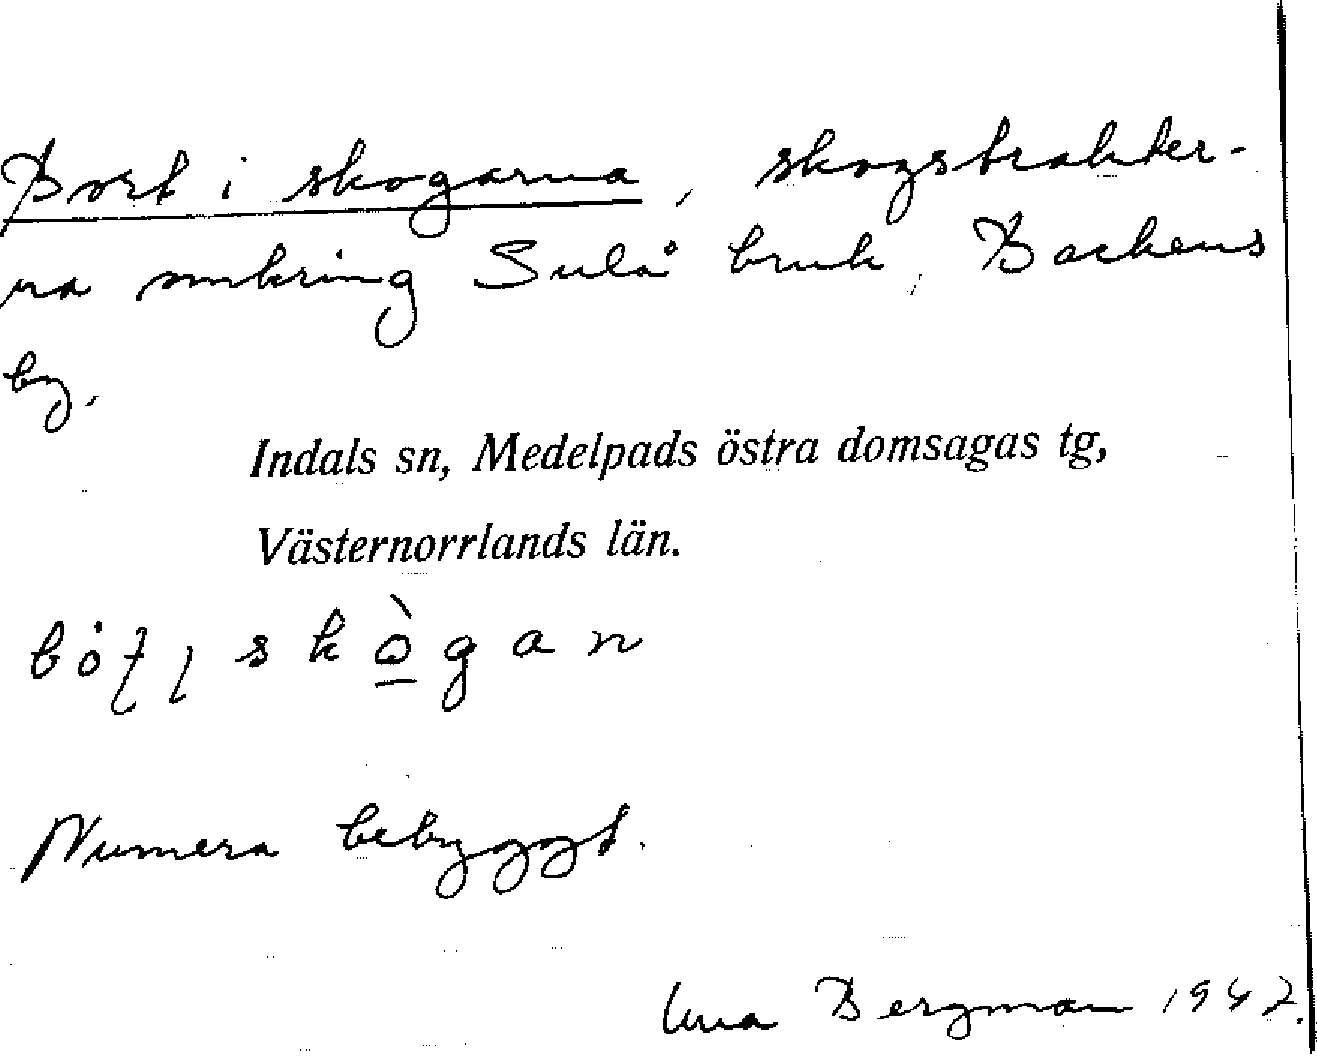 Bort i skogarna, skogstrakter-
na omkring Sulå bruk, Backens
by.
Indals sn, Medelpads östra domsagas tg,
Västernorrlands län.
skògan
Numera bebyggt.
Una Bergman 1947.